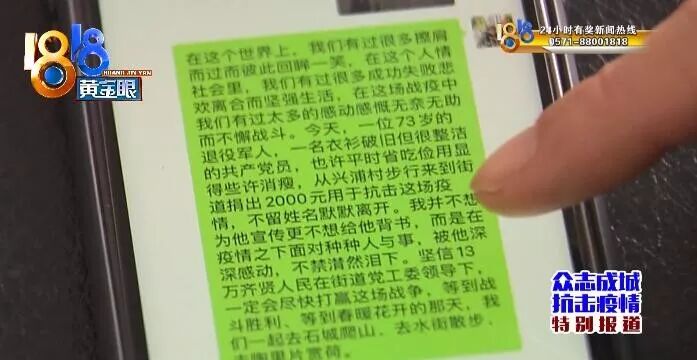 1818
HUANG JIN YAN
黄金眼
24小时有奖新闻热线
0571-88001818
在这个世界上，我们有过很多擦肩
而过而彼此回眸一笑，在这个人情
社会里，我们有过很多成功失败悲
欢离合而坚强生活，在这场战疫中
我们有过太多的感动感慨无奈无助
而不懈战斗。今天，一位73岁的
退役军人，一名衣衫破旧但很整洁
的共产党员，也许平时省吃俭用显
得些许消瘦，从兴浦村步行来到街
道捐出2000元用于抗击这场疫
情，不留姓名默默离开。我并不想
为他宣传更不想给他背书，而是在
疫情之下面对种种人与事，被他深
深感动，不禁潸然泪下。坚信13
万齐贤人民在街道党工委领导下，
一定会尽快打赢这场战争，等到战
斗胜利、等到春暖花开的那天，我
们一起去石城爬山、去水街散步、
去陶里片赏荷。
众志成城
抗击疫情
特别报道